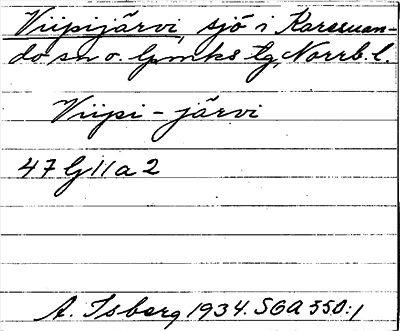 Viipijärvi, sjö i Karesuan-
do sn o. lpmks tg, Norrb. l.
Viipi-järvi
47 G 11 a 2
A. Isberg 1934. SOA 550:1